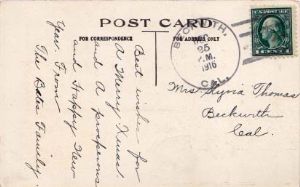 POST CARD
FOR CORRESPONDENCE
FOR ADDRESS ONLY
BECKWITH,
25
P.M.
1916
CAL.
1 CENT 1
Best wishes for
A Merry Xmas.
and A prosperous
and Happy New
Year From
The Bates Family
Mrs Thomas
Beckwith
Cal.